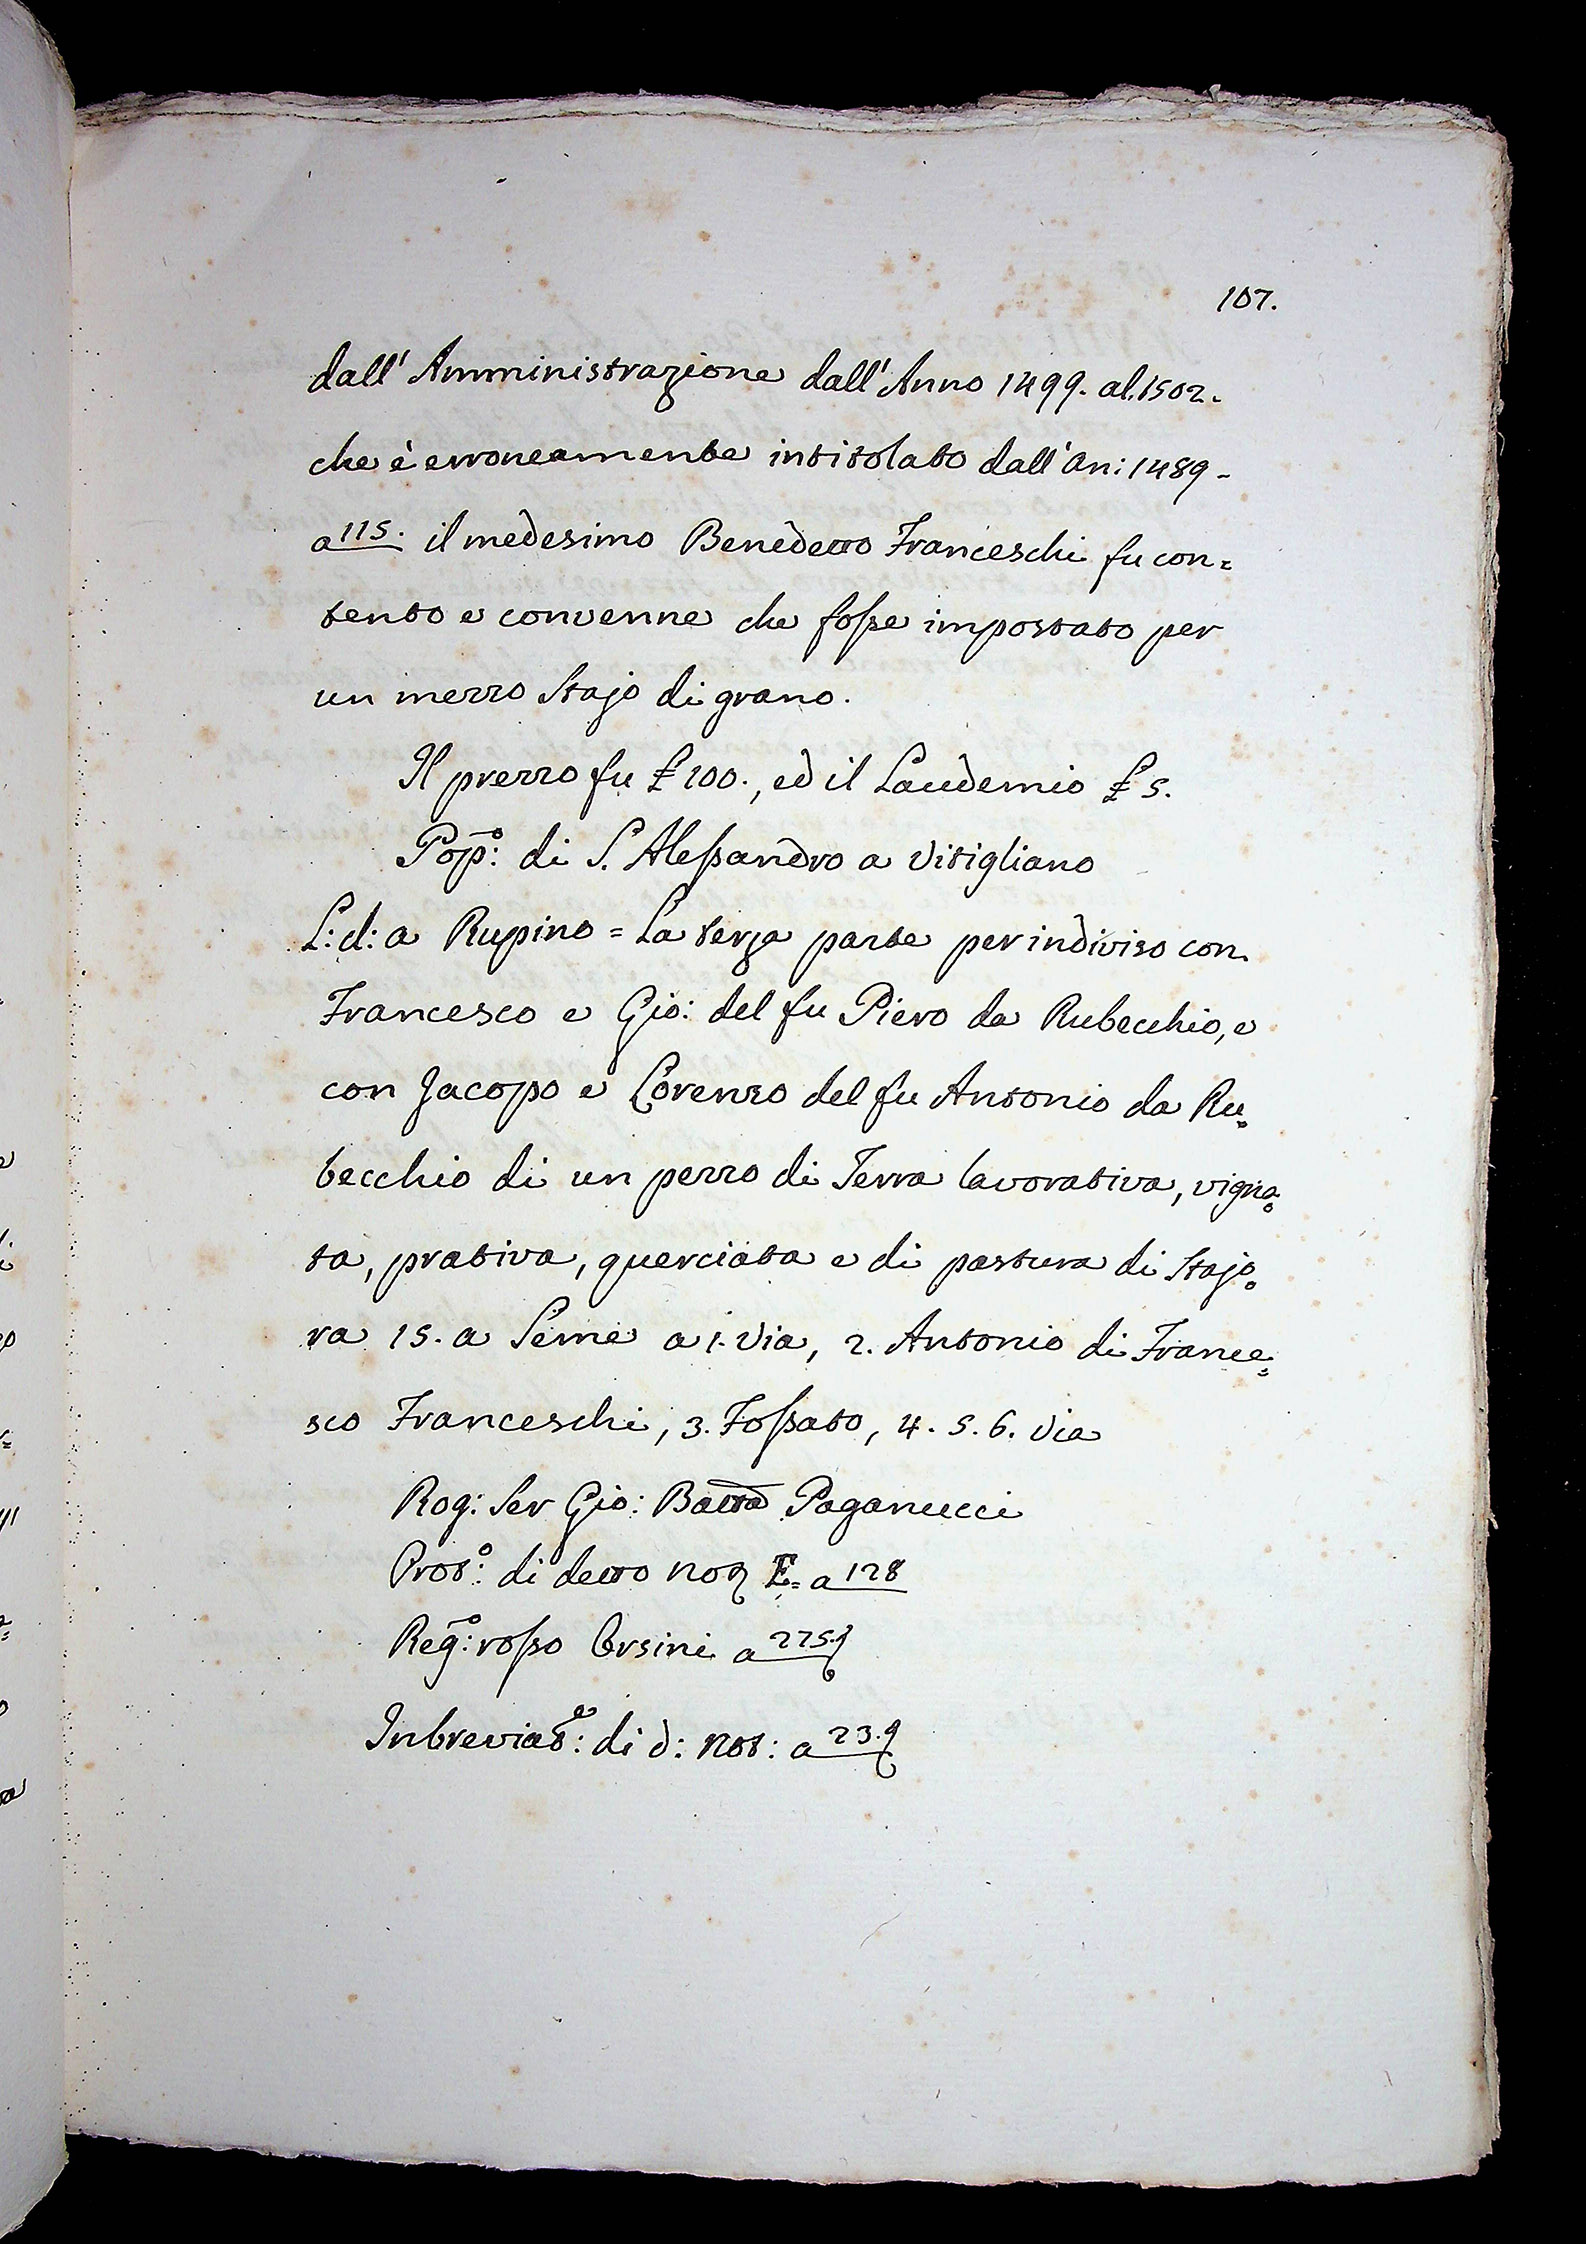 107.
dall' Amministrazione dall' Anno 1499. al. 1502.
che è erroneamente intitolato dall' An: 1489.
a 115. il medesimo Benedetto Franceschi fu con=
tento e convenne che fosse impostato per
un mezzo Stajo di grano.
Il prezzo fu £ 100., ed il Laudemio £ 5.
Pop:o di S. Alessandro a Vitigliano
L: d: a Rupino = La terza parte per indiviso con
Francesco e Gio: del fu Piero da Rubecchio, e
con Jacopo e Lorenzo del fu Antonio da Ru=
becchio di un pezzo di Terra lavorativa, vigna=
ta, prativa, querciata e di pastura di Stajo=
ra 15. a Seme a 1. Via, 2. Antonio di France=
sco Franceschi, 3. Fossato, 4. 5. 6. Via
Rog: Ser Gio: Batta Paganucci
Prot:o di detto Not E= a 128
Reg:o rosso Orsini a 225.
Inbreviat:e di d: Not: a 23.